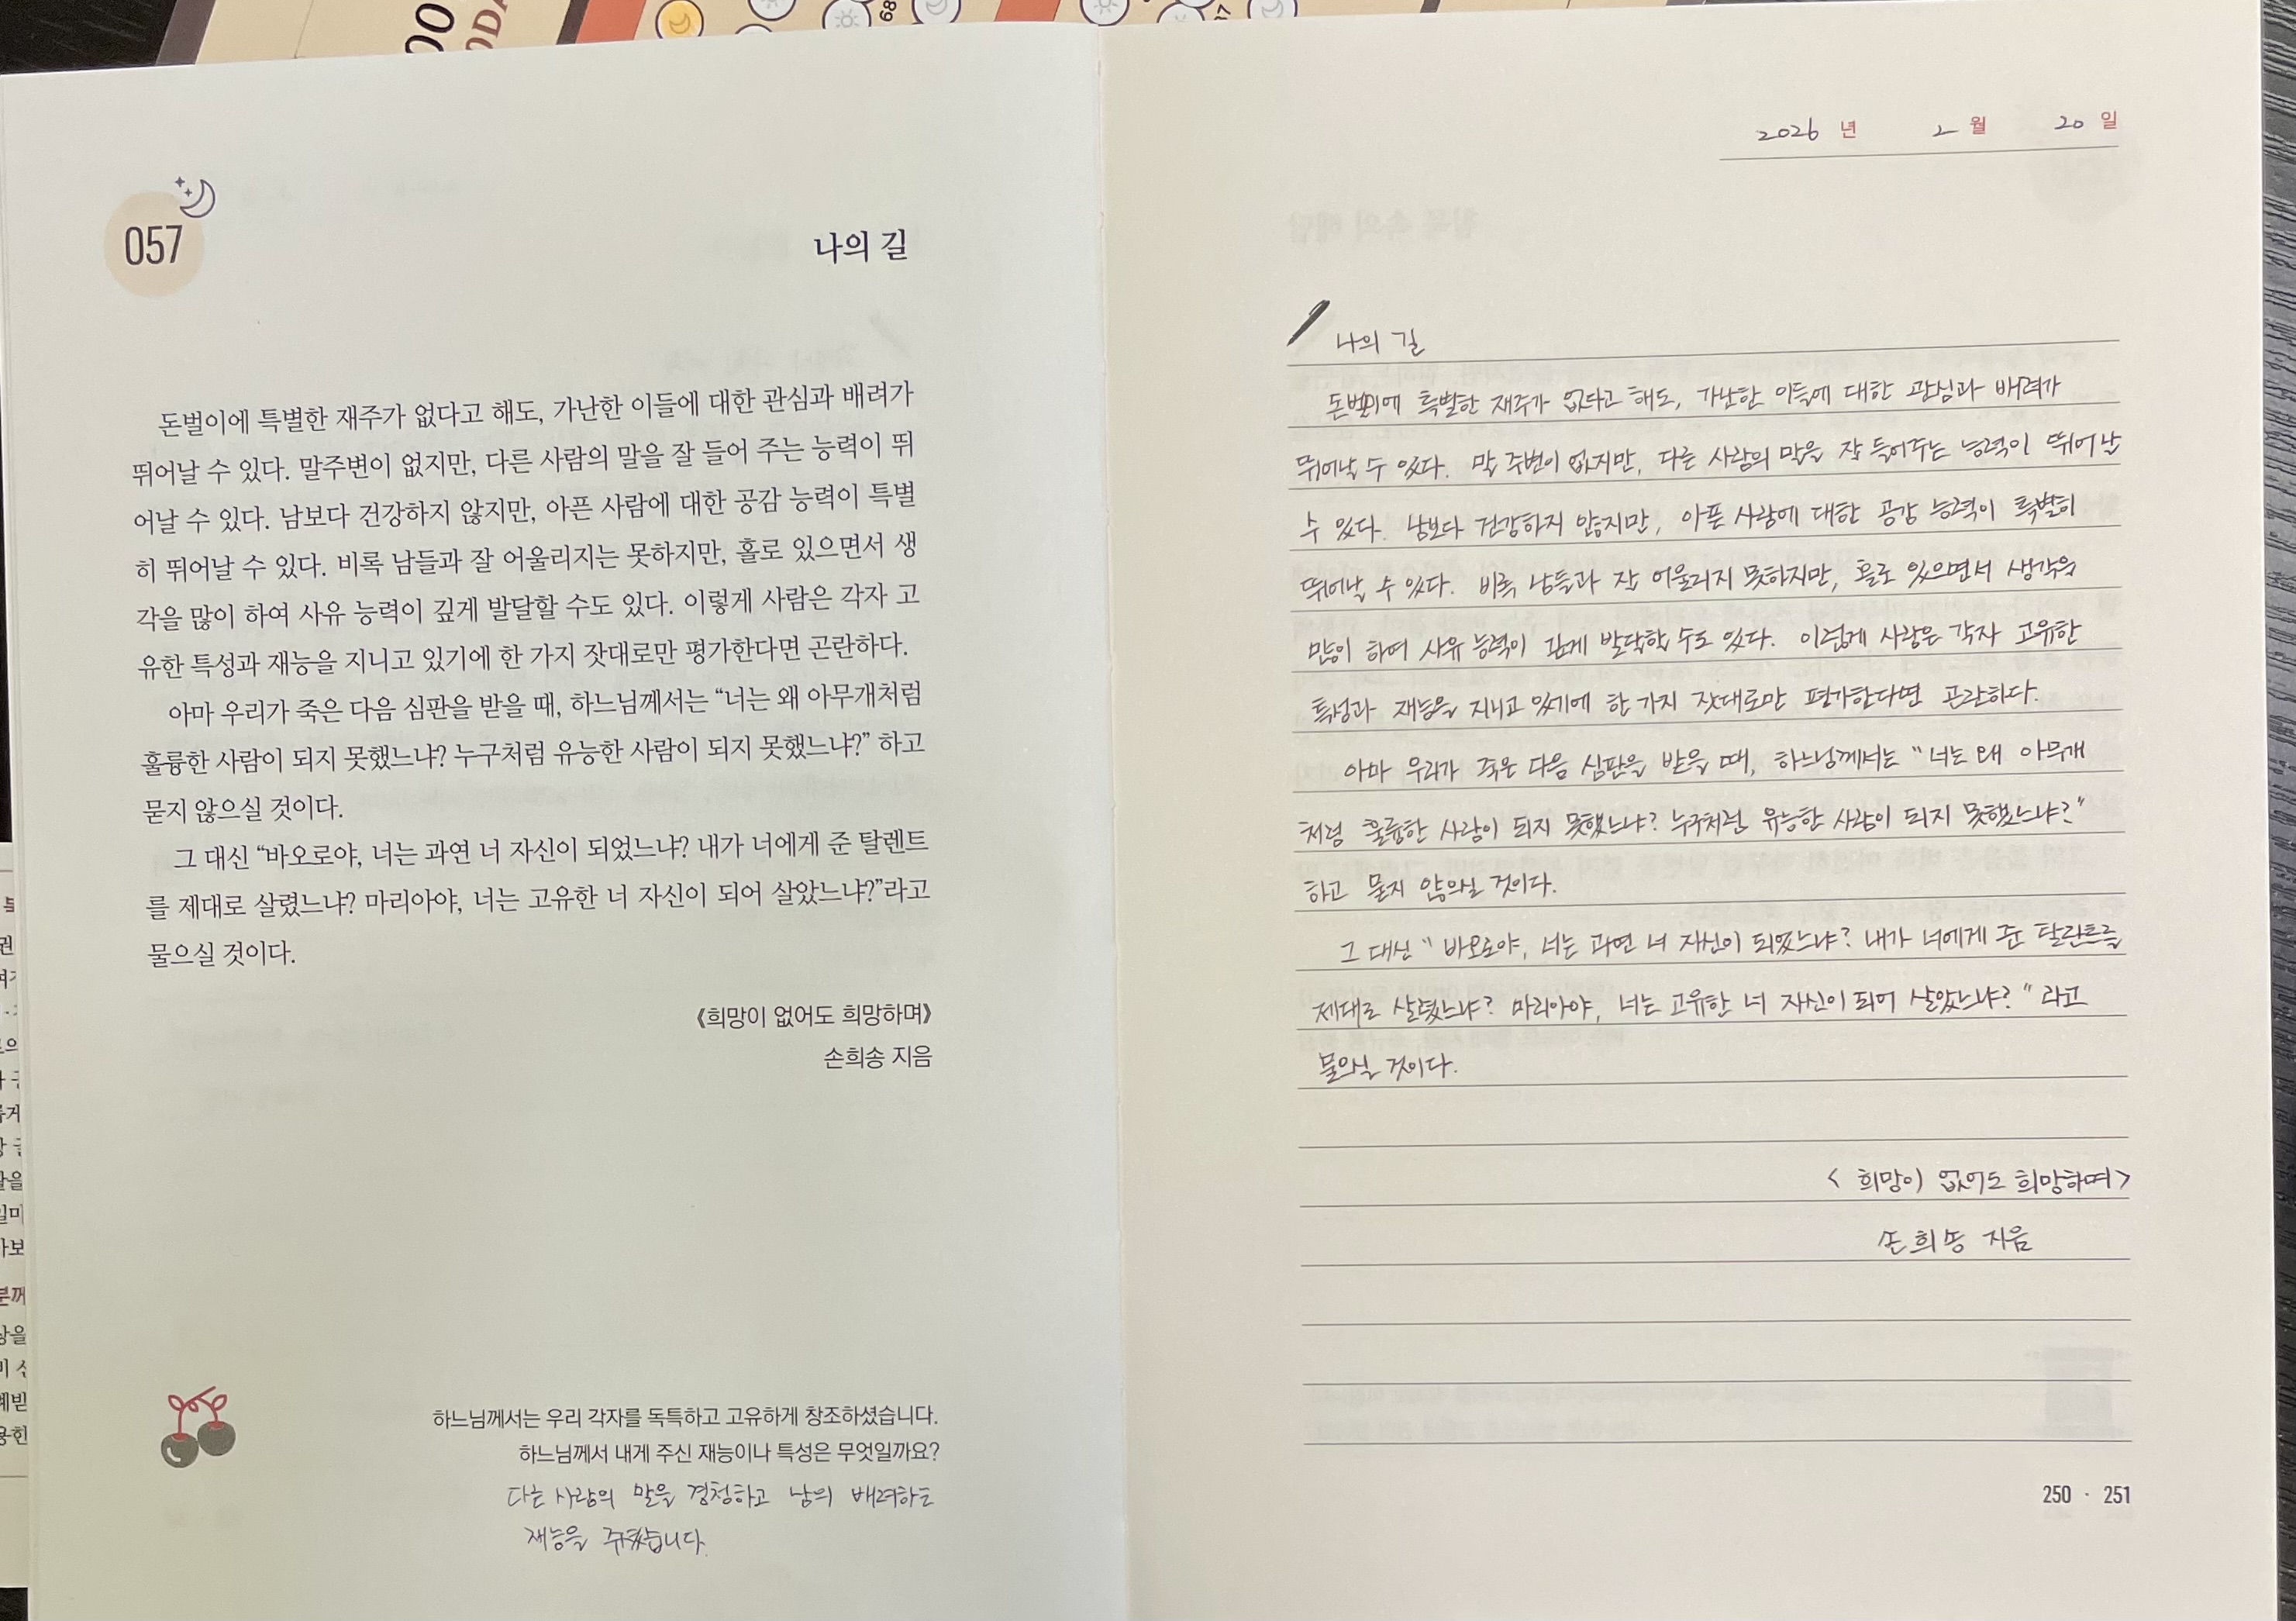 057
나의 길
돈벌이에 특별한 재주가 없다고 해도, 가난한 이들에 대한 관심과 배려가
뛰어날 수 있다. 말주변이 없지만, 다른 사람의 말을 잘 들어 주는 능력이 뛰
어날 수 있다. 남보다 건강하지 않지만, 아픈 사람에 대한 공감 능력이 특별
히 뛰어날 수 있다. 비록 남들과 잘 어울리지는 못하지만, 홀로 있으면서 생
각을 많이 하여 사유 능력이 깊게 발달할 수도 있다. 이렇게 사람은 각자 고
유한 특성과 재능을 지니고 있기에 한 가지 잣대로만 평가한다면 곤란하다.
아마 우리가 죽은 다음 심판을 받을 때, 하느님께서는 “너는 왜 아무개처럼
훌륭한 사람이 되지 못했느냐? 누구처럼 유능한 사람이 되지 못했느냐?” 하고
묻지 않으실 것이다.
그 대신 “바오로야, 너는 과연 너 자신이 되었느냐? 내가 너에게 준 탈렌트
를 제대로 살렸느냐? 마리아야, 너는 고유한 너 자신이 되어 살았느냐?”라고
물으실 것이다.
《희망이 없어도 희망하며》
손희송 지음
하느님께서는 우리 각자를 독특하고 고유하게 창조하셨습니다.
하느님께서 내게 주신 재능이나 특성은 무엇일까요?
다른 사람의 말을 경청하고 남의 배려하는
재능을 주셨습니다.
2026 년 2 월 20 일
나의 길
돈벌이에 특별한 재주가 없다고 해도, 가난한 이들에 대한 관심과 배려가
뛰어날 수 있다. 말 주변이 없지만, 다른 사람의 말을 잘 들어주는 능력이 뛰어날
수 있다. 남보다 건강하지 않지만, 아픈 사람에 대한 공감 능력이 특별히
뛰어날 수 있다. 비록 남들과 잘 어울리지 못하지만, 홀로 있으면서 생각을
많이 하여 사유 능력이 깊게 발달할 수도 있다. 이렇게 사람은 각자 고유한
특성과 재능을 지니고 있기에 한 가지 잣대로만 평가한다면 곤란하다.
아마 우리가 죽은 다음 심판을 받을 때, 하느님께서는 "너는 왜 아무개
처럼 훌륭한 사람이 되지 못했느냐? 누구처럼 유능한 사람이 되지 못했느냐?"
하고 묻지 않으실 것이다.
그 대신 "바오로야, 너는 과연 너 자신이 되었느냐? 내가 너에게 준 탈란트를
제대로 살렸느냐? 마리아야, 너는 고유한 너 자신이 되어 살았느냐?"라고
물으실 것이다.
< 희망이 없어도 희망하며>
손희송 지음
250 · 251